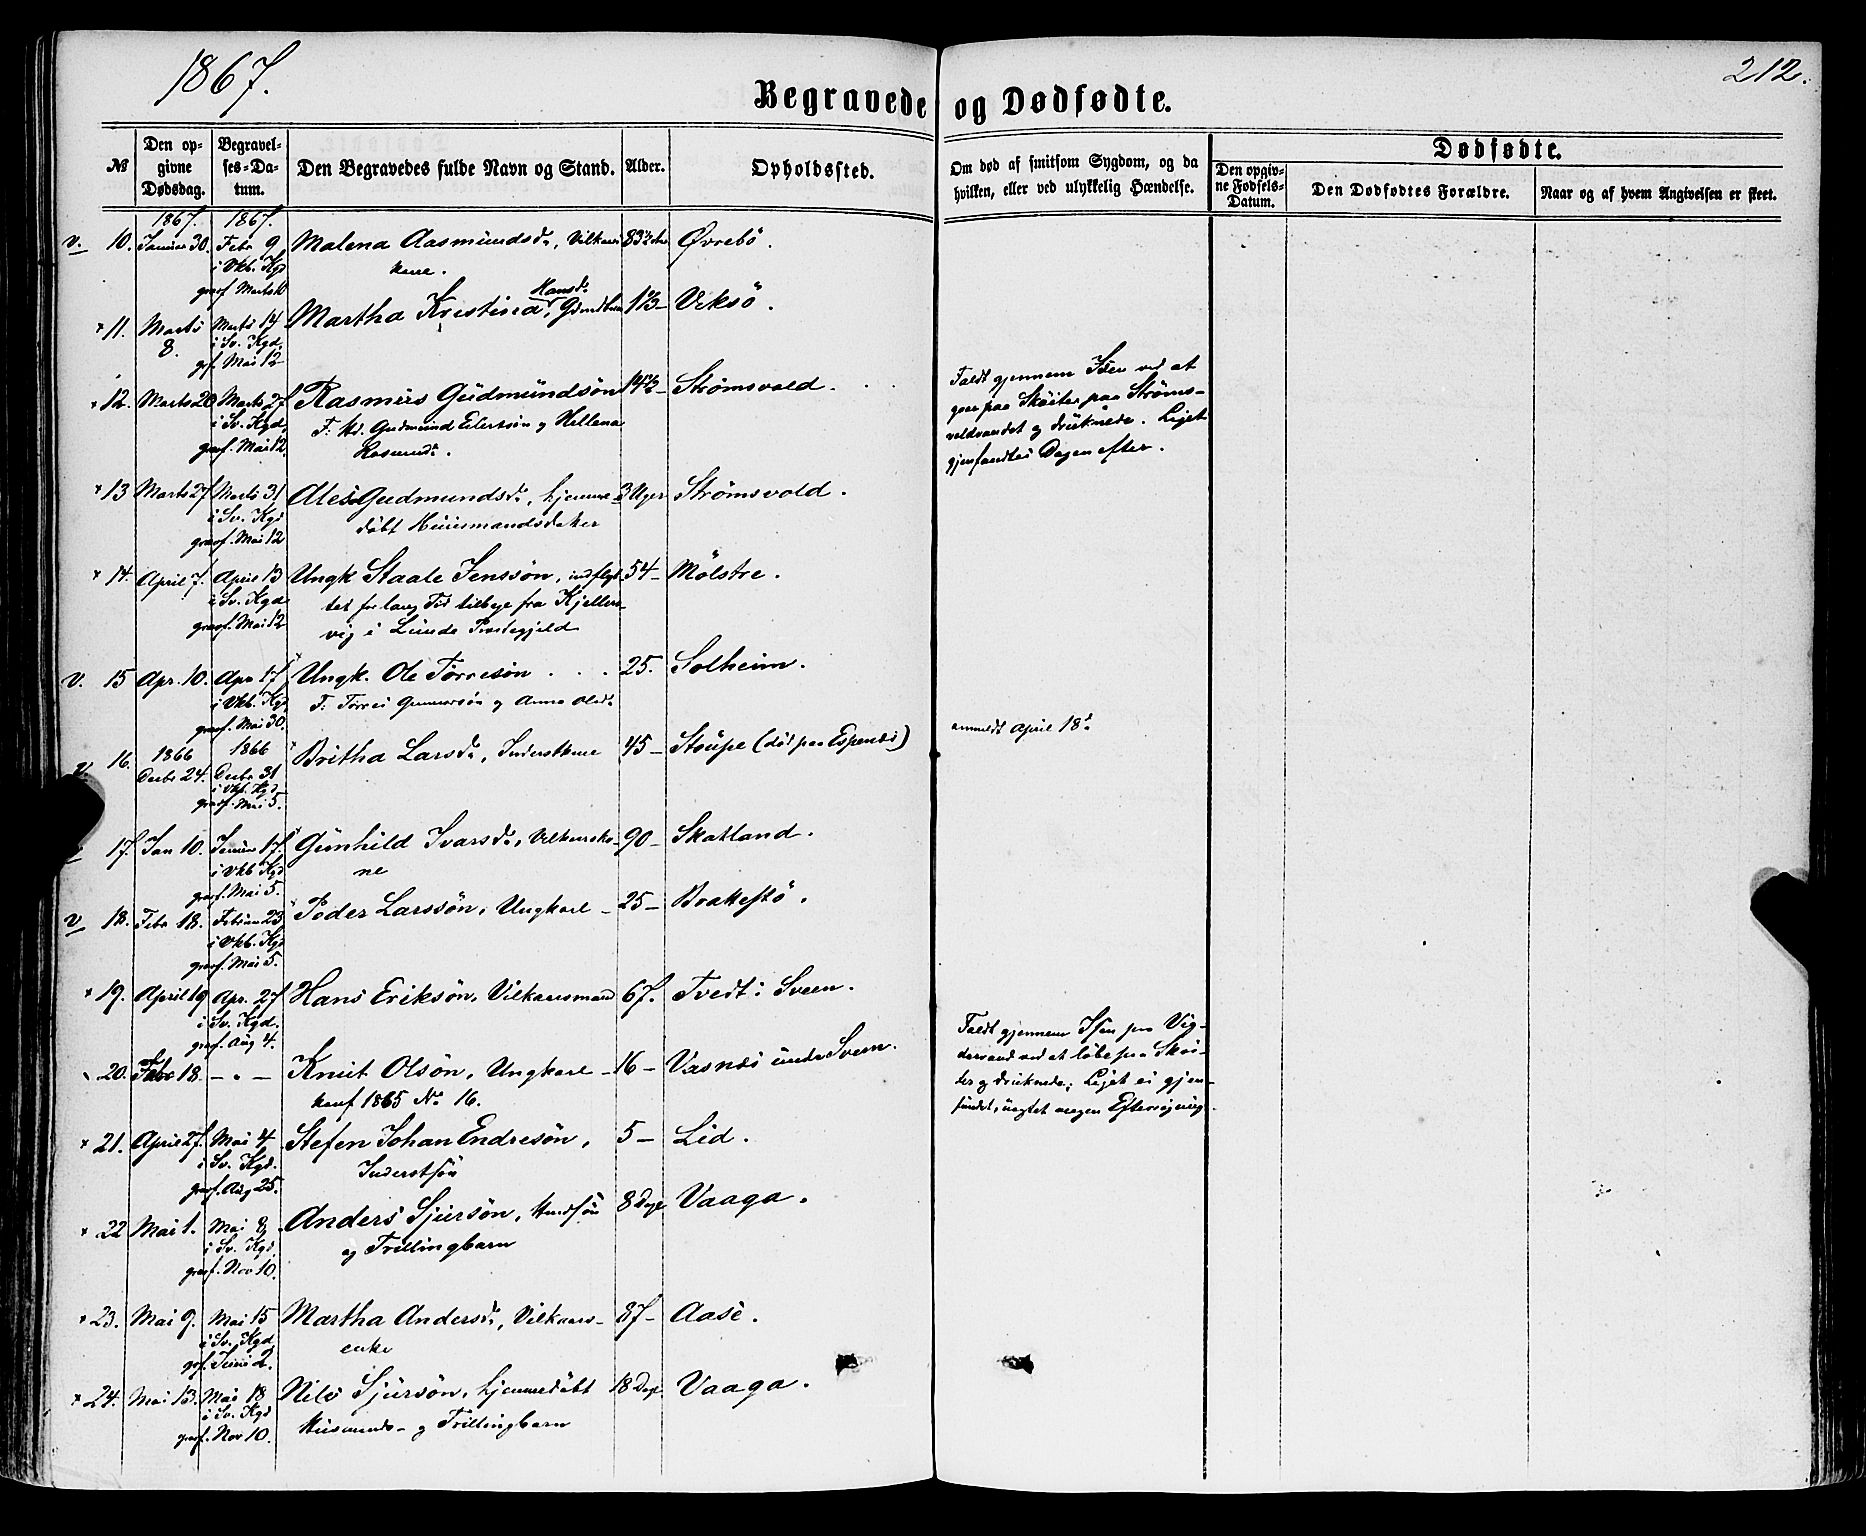 1867.
212.
Begravede og Dødfødte.
№
Den opgivne Dødsdag.
Begravelses-Datum.
Den Begravedes fulde Navn og Stand.
Alder.
Opholdssted.
Om død af smitsom Sygdom, og da hvilken, eller ved ulykkelig Hændelse.
Dødfødte.
Den opgivne Fødsels-Datum.
Den Dødfødtes Forældre.
Naar og af hvem Angivelsen er skeet.
1867. 1867.
v. 10. Januar 30. Febr 9 Malena Aasmundsd., Vilkaars 83½ Øvrebö.
i Vkb. Kgd kone.
grasf. Marts 10
Hansd.
11. Marts 8. Marts 14 Martha Kristina, Veksö.
i Sv. Kgd,
gf. Mai 12
12. Marts 20 Marts 27 Rasmus Gudmundsön 14½ Strömsvold.
i Sv. Kgd, F: Gudmund Eilertsön og Hellena
grasf. Mai 12 Rasmusd.
Faldt gjennem Isen ved at
gaae paa Skøiter paa Ströms-
voldvandet og druknede. Liget
gjenfandtes Dagen efter.
13 Marts 27 Marts 31 Gudmundsd., hjemme- 3 Uger Strömsvold.
i Sv. Kgd döbt
grasf. Mai 12
14. April 7. April 13 Ungk Staale Jenssön, indflyt- 54 - Mölstre.
i Sv. Kgd tet for lang Tid tilbage fra Kjellers-
grasf. Mai 12 vig i Lunde Præstegjeld
v. 15 Apr. 10. Apr 17 Ungk. Ole Torresön . . . 25. Solheim.
i Vkb. Kgd, F: Torres Gunnarsön og Anna Olsd.
grasf. Mai 30.
1866 1866
v. 16. Decbr 24. Decbr 31 Britha Larsd., Inderstkone 45 - Stoupe (död paa Espenes) anmeldt April 18.
i Vkb. Kgd
grasf. Mai 5.
17. Jan 10. Januar 17. Gunhild Ivarsd., Vilkaarsko- 90 - Skatland.
i Vkb Kgd ne
grasf. Mai 5.
v 18. Febr 18. Februar 23 Peder Larssön, Ungkarl - 25 - Brakestö.
i Vkb. Kgd
grasf. Mai 5.
19. April 19 Apr. 27 Hans Eriksön, Vilkaarsmand 67. Tvedt i Sveen.
i Sv. Kgd.
grasf. Aug 4.
20. Febr 18. - . - Knut Olsön, Ungkarl - 16 - Vasnes under Sveen.
konf 1865 No 16.
Faldt gjennem Isen paa Vig-
dervand ved at löbe paa Skøi-
ter og druknede; Liget ei gjen-
fundet, uagtet megen Eftersögning.
21. April 27. Mai 4 Stefen Johan Endresön, 5 - Lid.
i Sv. Kgd. Inderstsön
grasf. Aug 25.
22 Mai 1. Mai 8 Anders Sjursön, 8 Dage Vaaga.
i Sv. Kgd. og Trillingbarn
grasf. Nov 10.
23. Mai 9. Mai 15 Martha Andersd., Vilkaars- 87 - Aase.
i Sv. Kgd, enke
gf. Juni 2.
24. Mai 13. Mai 18 Nils Sjursön, hjemmedöbt 18 Dage Vaaga.
i Sv. Kgd Husmands- og Trillingbarn
grasf. Nov 10.